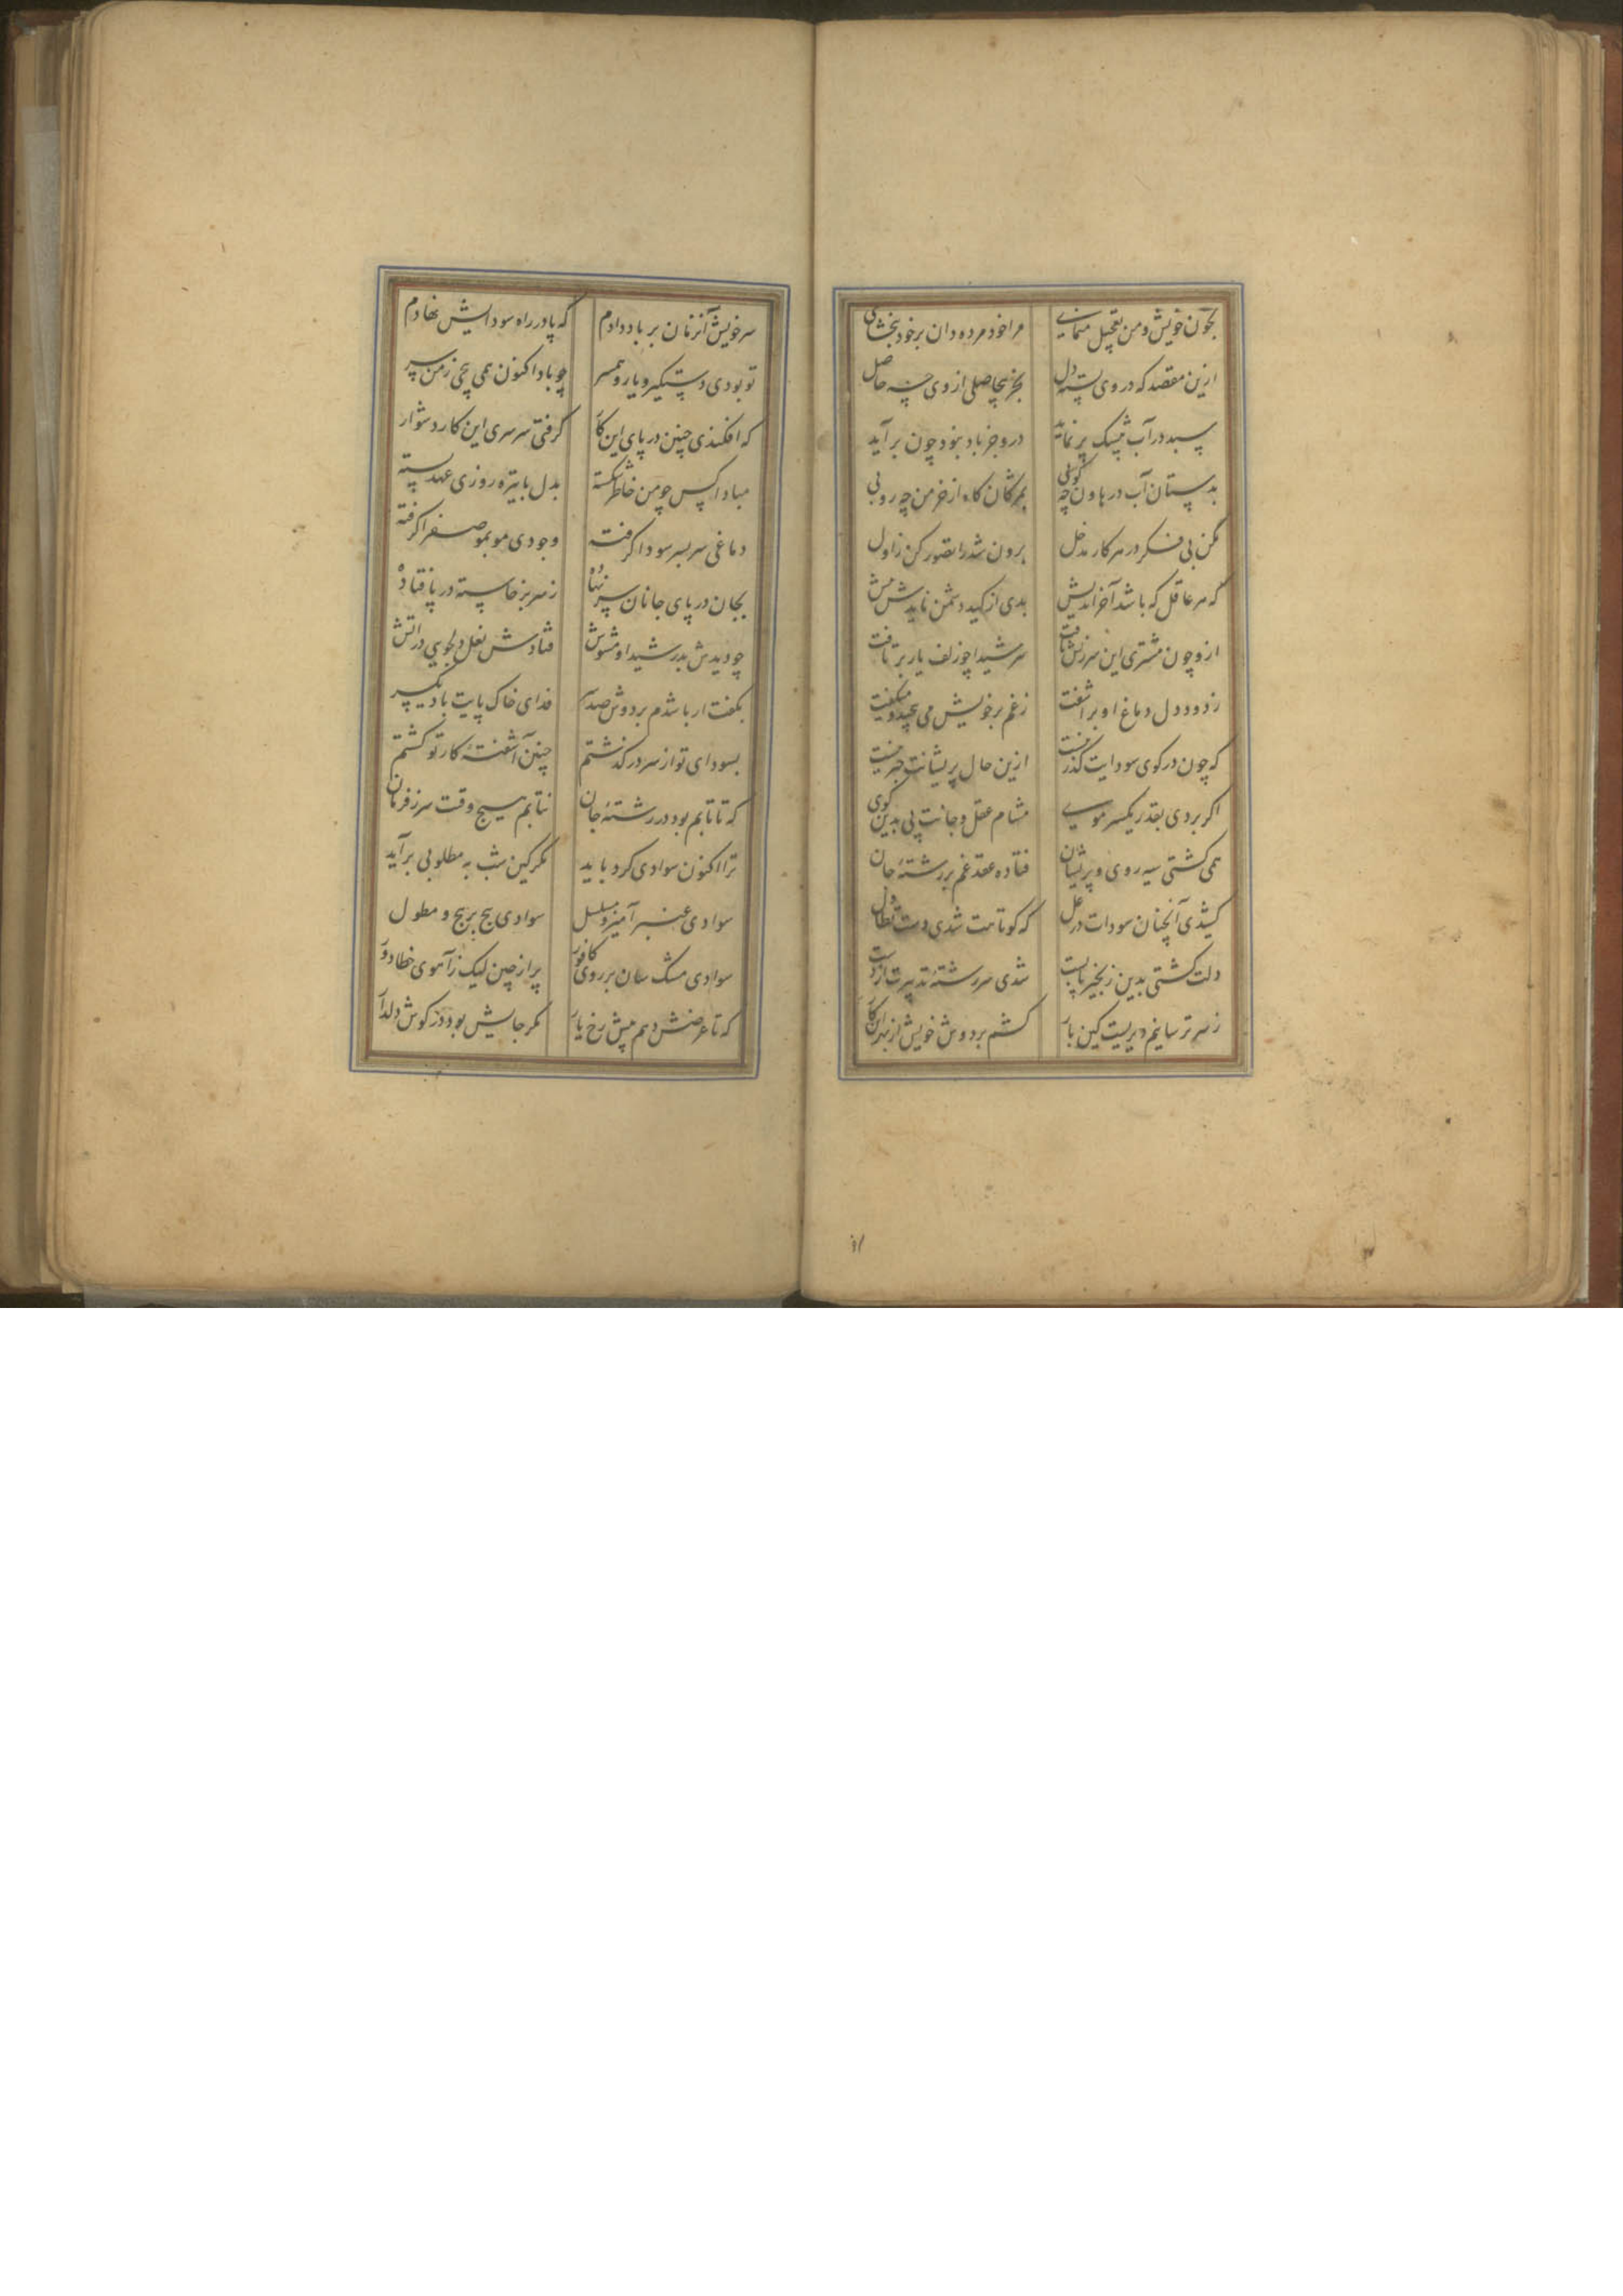 بخون خویش و من تعجیل منمای
مرا خود مرده دان بر خود ببخشای
ازین مقصد که در وی بسته دل
بجز بیحاصلی از وی چه حاصل
سبد در آب پیشک پر نماید
درو جز باد نبود چون برآید
بدستان آب در هاون چه کوبی
بمژگان کاه از خرمن چه روبی
مکن بی فکر در هر کار مدخل
برون شد را تصور کن ز اول
که هر عاقل که باشد آخراندیش
بدی از کید دشمن نایدش پیش
ازو چون مشتری این سرزنش یافت
سر شیدا چو زلف یار برتافت
ز دود دل دماغ او برآشفت
ز غم بر خویش می پیچید و میگفت
که چون در کوی سودایت گذر نیست
ازین حال پریشانت خبر نیست
اگر بردی بقدر یکسر مویی
مشام عقل و جانت پی بدین کوی
همی گشتی سیه روی و پریشان
فتاده عقد غم بر رشتهٔ جان
کشیدی آنچنان سودات در غل
که کوتاهت شدی دست تطاول
دلت گشتی بدین زنجیر پابست
شدی سررشتهٔ تدبیرت از دست
ز سر ترسانیم دیریست کین بار
کشم بر دوش خویش از بهر این کار
سر خویش آنزمان بر باد دادم
که پا در راه سودایش نهادم
تو بودی دستگیر و یار و همسر
چو باد اکنون همی پیچی ز من سر
که افکندی چنین در پای این کار
گرفتی سرسری این کار دشوار
مبادا کس چو من خاطر شکسته
بدل با تیره روزی عهد بسته
دماغی سر بسر سودا گرفته
وجودی مو بمو صفرا گرفته
بجان در پای جانان سر نهاده
ز سر برخاسته در پا فتاده
چو دیدش بدر شیدا و مشوش
فتادش نعل دلجویی در آتش
بگفت ار باشدم بر دوش صد سر
فدای خاک پایت باد یکسر
بسودای تو از سر در گذشتم
چنین آشفتهٔ کار تو گشتم
که تا تابم بود در رشتهٔ جان
نتابم هیچ وقت سر ز فرمان
ترا اکنون سوادی کرد باید
مگر کین شب به مطلوبی برآید
سوادی عنبر آمیز و مسلسل
سوادی پیچ بر پیچ و مطول
سوادی مشک سان بر روی کافور
پر از چین لیک ز آهوی خطا دور
که تا عرضش دهم پیش رخ یار
مگر جایش بود در گوش دلدار